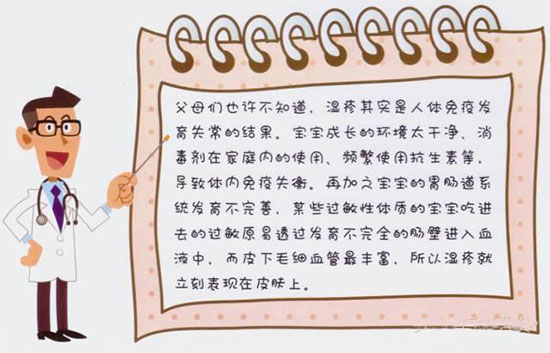 父母们也许不知道，湿疹其实是人体免疫发
育失常的结果。宝宝成长的环境太干净、消
毒剂在家庭内的使用、频繁使用抗生素等，
导致体内免疫失衡。再加之宝宝的胃肠道系
统发育不完善，某些过敏性体质的宝宝吃进
去的过敏原易透过发育不完全的肠壁进入血
液中，而皮下毛细血管最丰富，所以湿疹就
立刻表现在皮肤上。